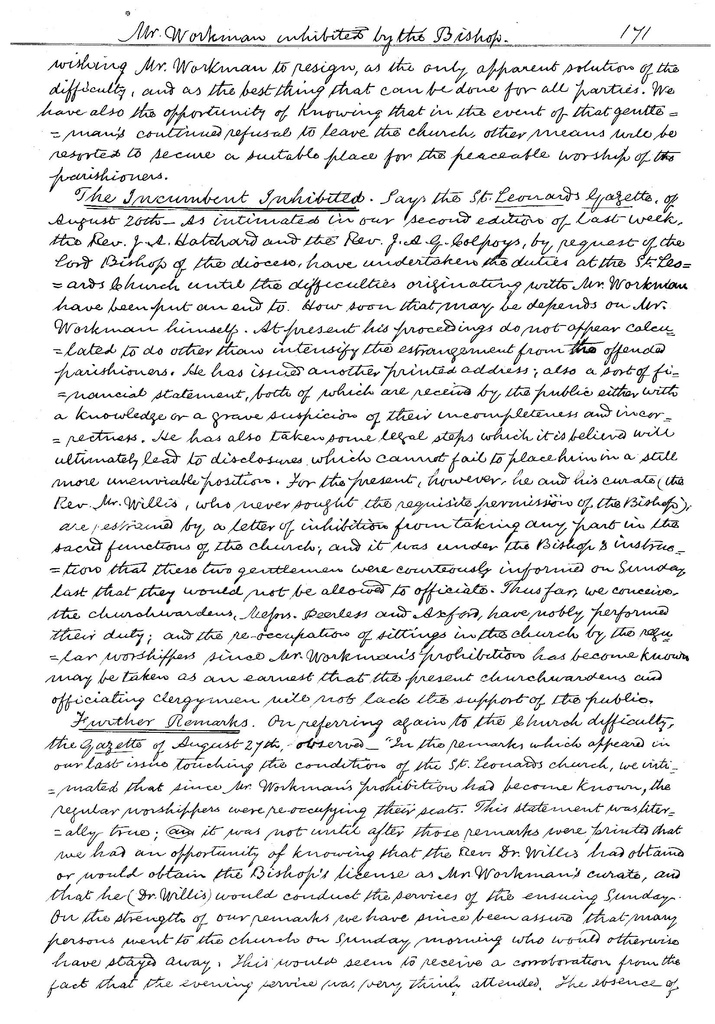 Mr. Workman inhibited by the Bishop. 171
wishing Mr. Workman to resign, as the only apparent solution of the
difficulty, and as the best thing that can be done for all parties. We
have also the opportunity of knowing that in the event of that gentle=
=man's continued refusal to leave the church, other means will be
resorted to secure a suitable place for the peaceable worship of the
parishioners.
The Incumbent Inhibited. Says the St. Leonards Gazette, of
August 20th — As intimated in our second edition of last week,
the Rev. J. A. Hatchard and the Rev. J. A. G. Colpoys, by request of the
Lord Bishop of the diocese, have undertaken the duties at the St. Leo=
=ards Church until the difficulties originating with Mr. Workman
have been put an end to. How soon that may be depends on Mr.
Workman himself. At present his procedings do not appear calcu=
=lated to do other than intensify the estrangement from the offended
parishioners. He has issued another printed address; also a sort of fi=
=nancial statement, both of which are receied by the public either with
a knowledge or a grave suspicion of their incompleteness and incor=
=rectness. He has also taken some legal steps which it is believed will
ultimately lead to disclosures which cannot fail to place him in a still
more unenviable position. For the present, however, he and his curate (the
Rev. Mr. Willis, who never sought the requisite permission of the Bishop),
are restrained by a letter of inhibition from taking any part in the
sacred functions of the church; and it was under the Bishop's instruc=
=tion that these two gentlemen were courteously informed on Sunday
last that they would not be allowed to officiate. Thus far, we conceive
the churchwardens, Messrs. Peerless and Axford, have nobly performed
their duty; and the re-occupation of sittings in the church by the regu
=lar worshippers since Mr. Workman's prohibition has become known
may be taken as an earnest that the present churchwardens and
officiating clergymen will not lack the support of the public.
Further Remarks. On referring again to the Church difficulty,
the Gazette of August 27th, observed — "In the remarks which appeared in
our last issue touching the condition of the St. Leonards church, we inti=
=mated that since Mr. Workman's prohibition had become known, the
regular worshippers were re-occupying their seats. This statement was liter=
=ally true; it was not until after those remarks were printed that
we had an opportunity of knowing that the Rev. Dr. Willis had obtained
or would obtain the Bishop's license as Mr. Workman's curate, and
that he (Dr. Willis) would conduct the services of the ensuing Sunday.
On the strength of our remarks we have since been assured that many
persons went to the church on Sunday morning who would otherwise
have stayed away. This would seem to receive a corroboration from the
fact that the evening service was very thinly attended. The absence of